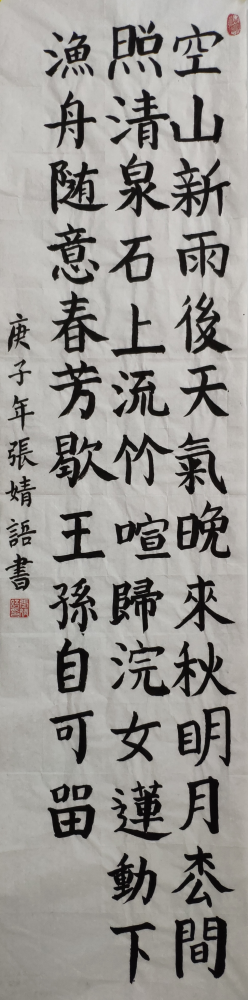 空山新雨後天氣晚來秋明月枩間
照清泉石上流竹喧歸浣女蓮動下
漁舟随意春芳歇王孫自可留
庚子年張婧語書